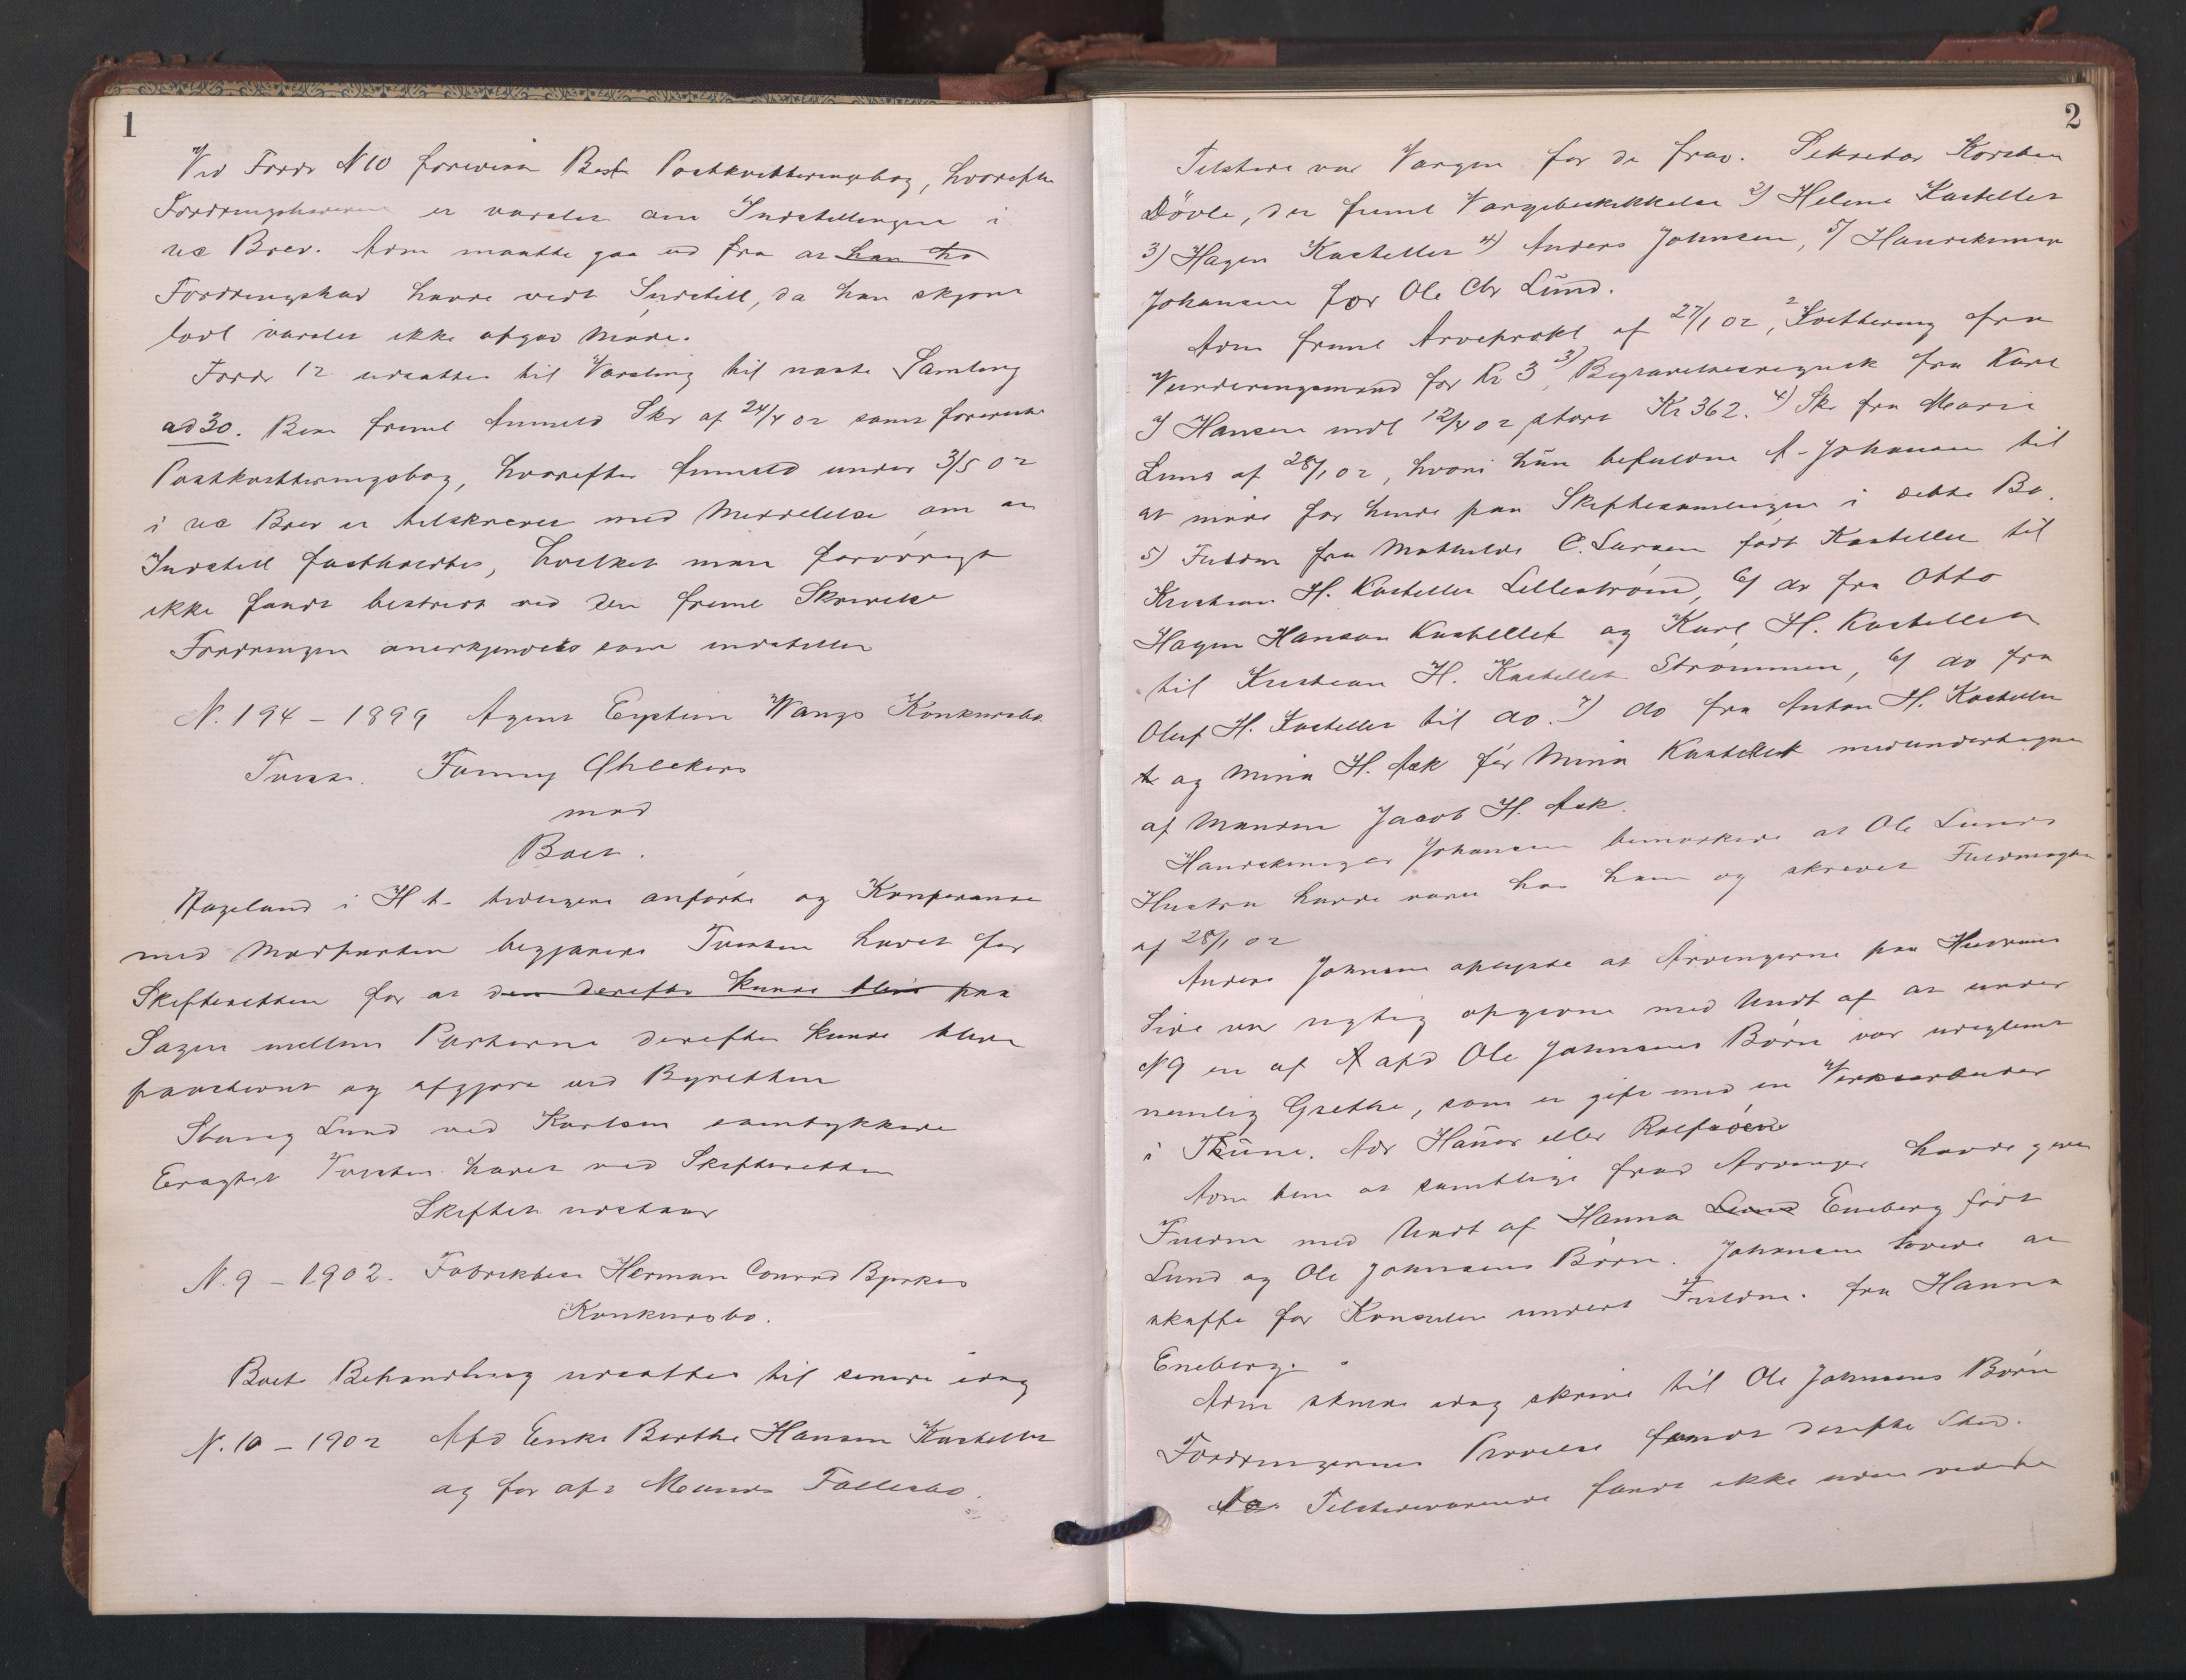 1
Ved Fordr N10 foreviser Best Postkvitteringsbog, hvorefter
Fordringshaveren er varslet om Indstillingen i
rec Brev. Adm maatte gaa ud fra at han ha
Fordringshav havde vedt Indstill, da han skjønt
lovl varslet ikke afgav Møde.
Fordr 12 udsattes til Varsling til næste Samling
ad 30. Best freml Anmeld Skr af 24/4 02 samt foreviste
Postkvitteringsbog, hvorefter Anmeld under 3/5 02
i rec Brev er tilskrevet med Meddelelse om at
Indstill fastholdtes, hvilket man forøvrigt
ikke fandt bestridt ved den freml Skrivelse
Fordringen anerkjendtes som indstillet
N. 194 - 1899 Agent Eystein Wangs Konkursbo.
Tvist. Fanny Ohlckers
mod
Boet.
Hageland i H t. tidligere anførte og Konferanse
med Modparten begjærede Tvisten hævet for
Skifteretten for at den derefter kunde blive paa
Sagen mellem Parterne derefter kunde blive
paastevnt og afgjøre ved Byretten
Stang Lund ved Karlsen samtykkede
Eragtet Tvisten hæves ved Skifteretten
Skiftet udstaar
N. 9 - 1902. Fabrikbes Herman Conrad Bjerkes
Konkursbo.
Boets Behandling udsattes til senere idag
N. 10 - 1902 Afd Enke Berthe Hansen Kastellet
og før afd Mands Fællesbo.
2
Tilstede var Vergen for de frav. Sekretær Karsten
Døvle, der freml Vergebeskikkelse 2) Helene Kastellet
3) Hagen Kastellet 4) Anders Johnsen, 5) Handelsmand
Johansen for Ole Chr Lund.
Adm freml Arveprokl af 27/1 02, 2 Kvittering fra
Vurderingsmænd for Kr 3 3), Begravelsesregnsk fra Karl
Hansen indl 12/4 02 stort Kr 362. 4) Skr fra Marie
Lund af 28/1 02, hvori hun befuldm A. Johansen til
at møde for hende paa Skiftesamlingen i dette Bo.
5) Fuldm fra Mathilde C. Larsen født Kastellet til
Kristian H. Kastellet Lillestrøm, 6) do fra Otto
Hagen Hansen Kastellet og Karl H. Kastellet
til Kristian H. Kastellet Strømmen, 6) do fra
Oluf H. Kastellet til do. 7) do fra Anton H. Kastellet
t og Mina H. Ask før Mina Kastellet medundertegnet
af Manden Jacob H. Ask.
Handelsmand Johansen bemærkede at Ole Lunds
Hustru havde været hos ham og skrevet Fuldmagten
af 28/1 02
Anders Johnsen oplyste at Arvingerne paa Hustruens
Side var rigtig opgivne med Undt af at under
N 9 en af A afd Ole Johnsens Børn var uteglemt
nemlig Grethe, som er gift med en Verksarbeider
i Thune. Adr Hauer eller Rolfsøen
Adm bem at samtlige fravd Arvinger havde given
Fuldm med Undt af Hanna Lund Eneberg født
Lund og Ole Johnsens Børn. Johansen lovede at
skaffe for Konsulen undert Fuldm. fra Hanna
Eneberg.
Adm skulde idag skrive til Ole Johnsens Børn
Fordringernes Prøvelse fandt derefter Sted.
De Tilstedeværende fandt ikke uden videre